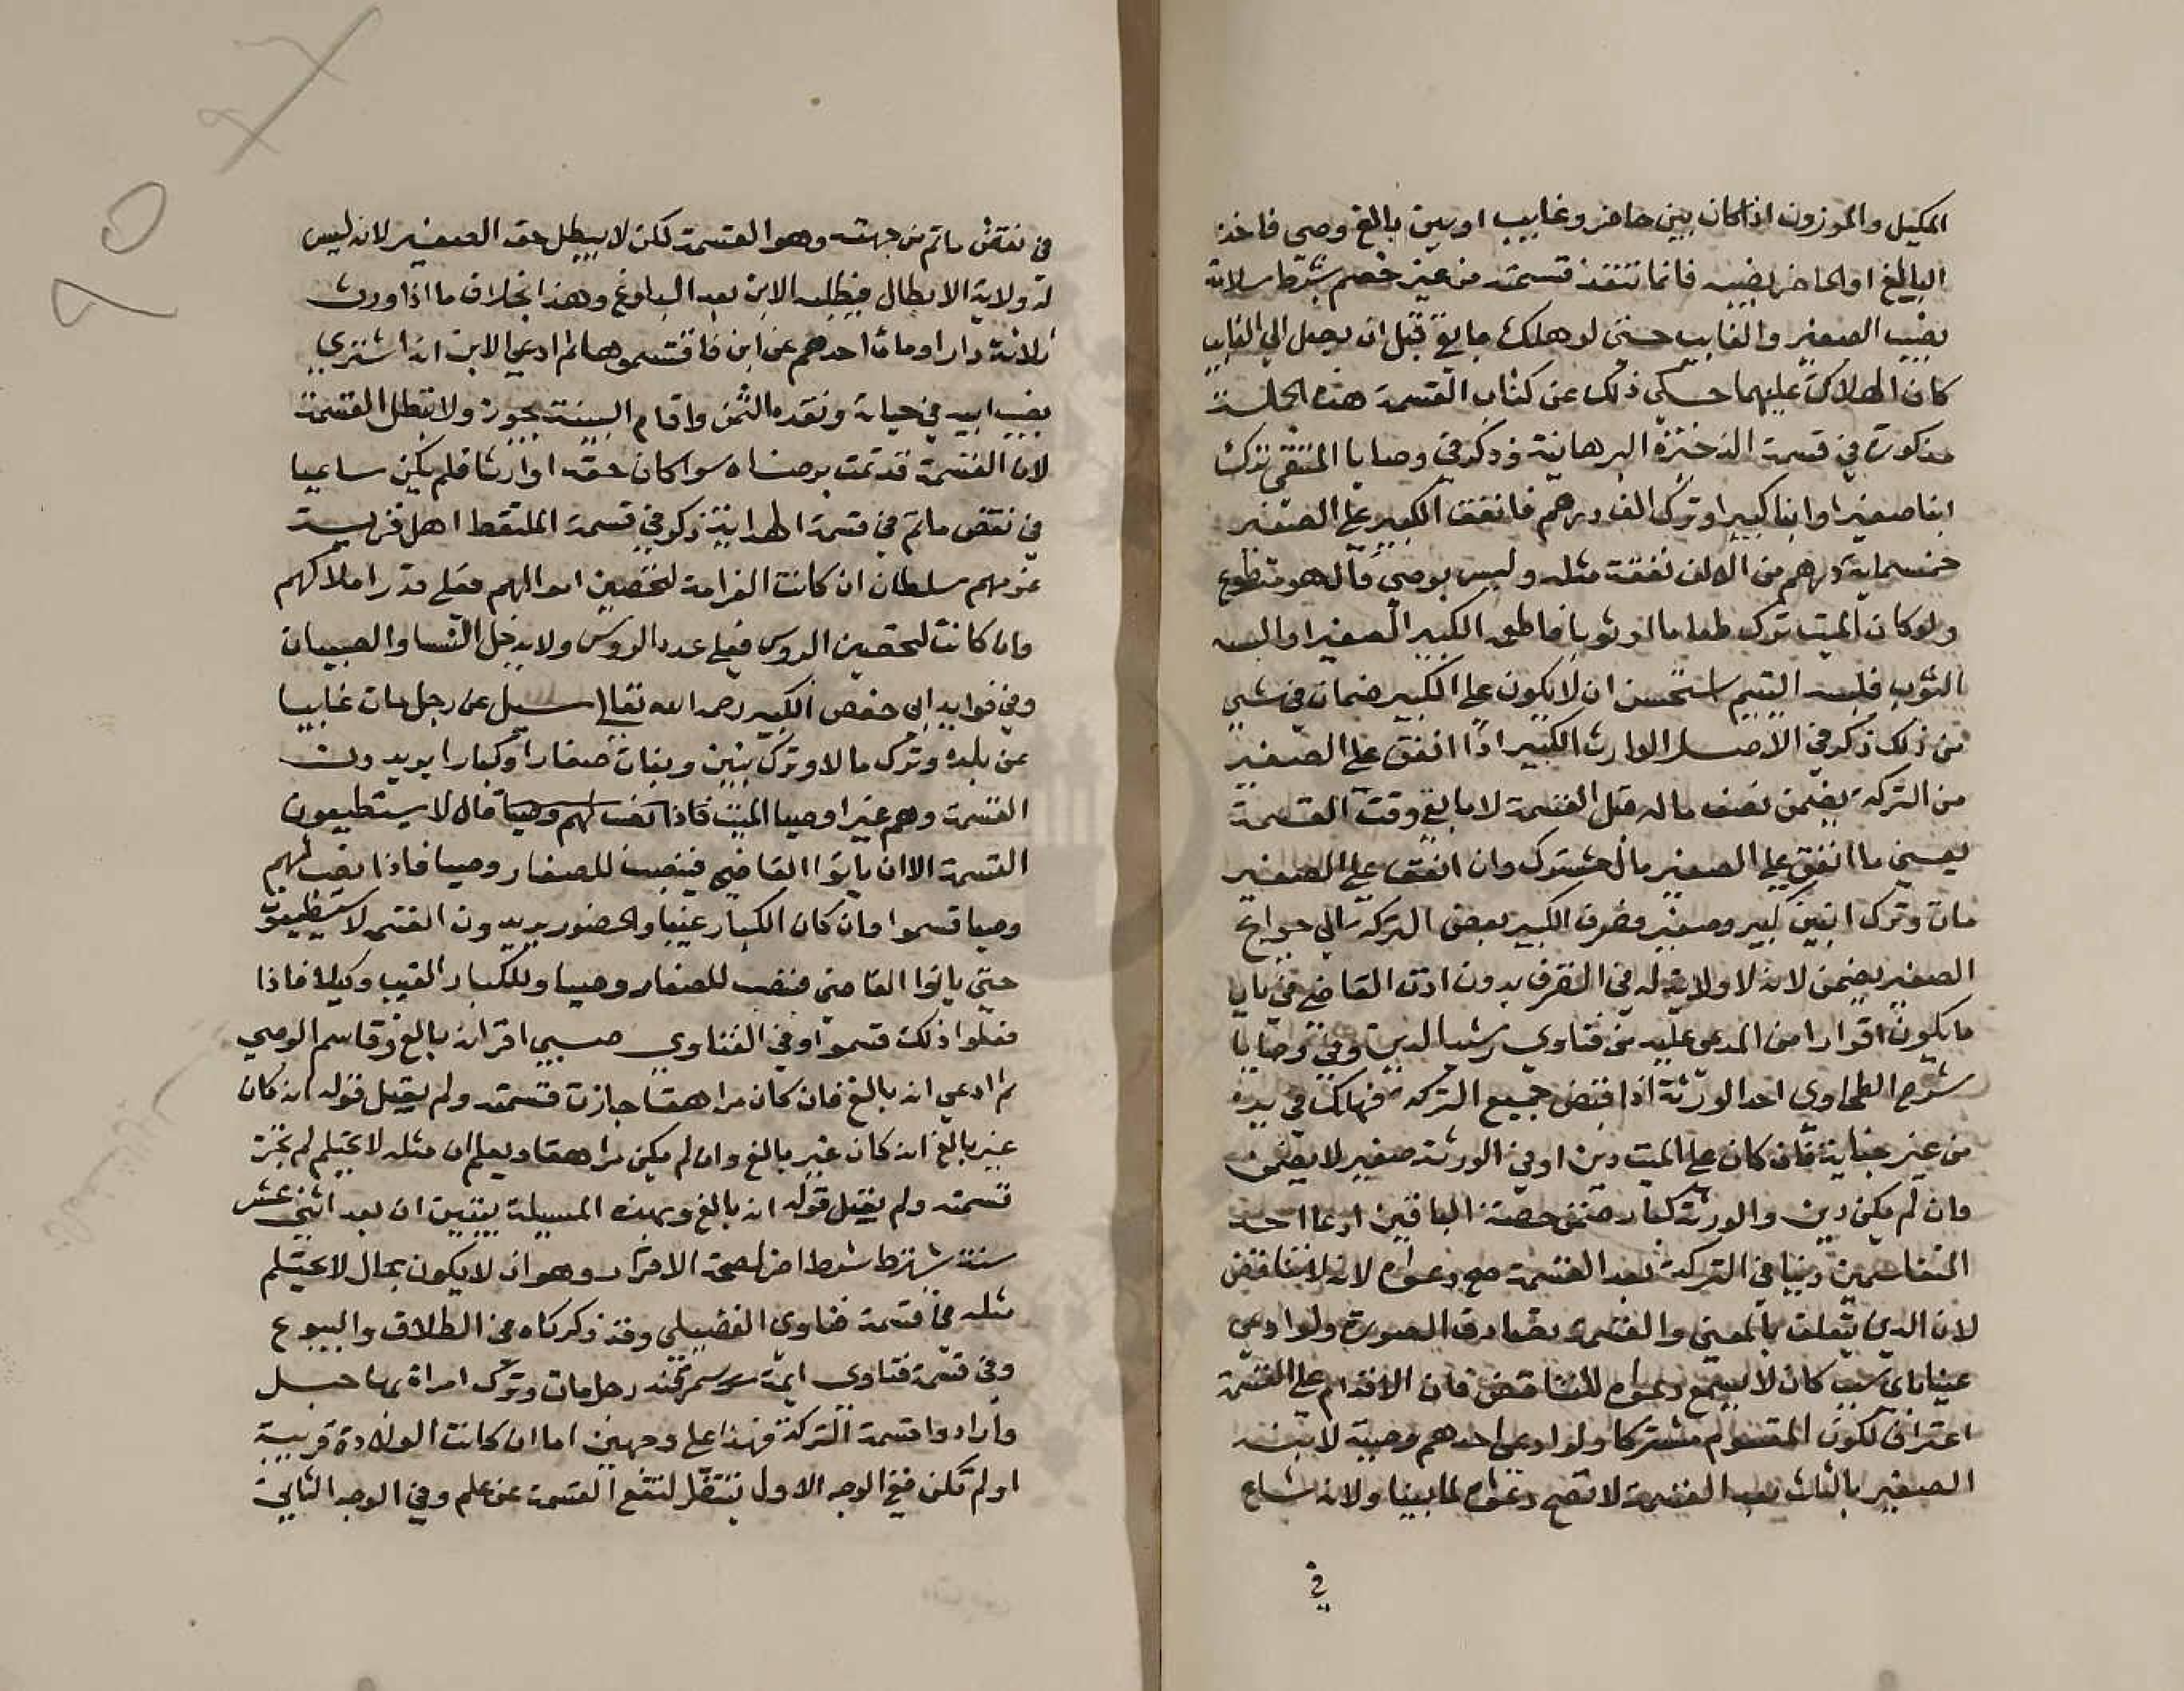 المكيل والموزون اذا كان بين حاضر وغايب او بين بالغ وصبي فاخذ
البالغ او الحاضر نصيبه فانما تنفذ قسمته من غير خصم بشرط سلامة
نصيب الصغير والغايب حتى لو هلك ما بقي قبل ان يصل الى الغايب
كان الهلاك عليهما حكى ذلك عن كتاب القسمة هذه الجملة
مذكورة في قسمة الذخيرة البرهانية وذكر في وصايا المنتقى ترك
ابنا صغيرا وابنا كبيرا وترك الف درهم فانفق الكبير على الصغير
خمسماية درهم من الالف نفقة مثله وليس بوصي قال هو متطوع
ولو كان الميت ترك طعاما او ثوبا فاطعم الكبير الصغير او البسه
الثوب فلبسه اليتيم استحسن ان لا يكون على الكبير ضمان في شي
من ذلك ذكر في الاصل الوارث الكبير اذا انفق على الصغير
من التركة يضمن نصف ماله قبل القسمة لا ما بقي وقت القسمة
يعني ما انفق على الصغير مال مشترك وان انفق على الصغير
مات وترك ابنين كبير وصغير فصرف الكبير بعض التركة الى حوايج
الصغير يضمن لانه لا ولاية له في التصرف بدون اذن القاضي في باب
ما يكون اقرارا من المدعى عليه من فتاوى رشيد الدين وفي وصايا
شرح الطحاوي احد الورثة اذا قبض جميع التركة فهلك في يده
من غير جناية فان كان على الميت دين او في الورثة صغير لا يضمن
وان لم يكن دين والورثة كبار ضمن حصة الباقين ادعا احد
المتقاسمين دينا في التركة بعد القسمة صح دعواه لانه لا تناقض
لان الدين يتعلق بالمعنى والقسمة تصادف الصورة ولو ادعى
عينا باي سبب كان لا يسمع دعواه للتناقض فان الاقدام على القسمة
اعتراف لكون المقسوم مشتركا ولو ادعى احدهم وصية لابنه
الصغير بالثلث بعد القسمة لا تصح دعواه لما بينا ولانه ساع
في
في نقض ما تم من جهته وهو القسمة لكن لا يبطل حق الصغير لانه ليس
له ولاية الابطال فيطلبه الابن بعد البلوغ وهذا بخلاف ما اذا ورث
ثلاثة دارا ومات احدهم عن ابن فاقتسموها ثم ادعى الابن انه اشترى
نصيب ابيه في حياته ونقده الثمن واقام البينة يجوز ولا تبطل القسمة
لان القسمة قد تمت برضاه سوا كان حقه او ارثا فلم يكن ساعيا
في نقض ما تم في قسمة الهداية ذكر في قسمة الملتقط اهل قرية
غرمهم سلطان ان كانت الغرامة لتحصين اموالهم فعلى قدر املاكهم
وان كانت لتحصين الروس فعلى عدد الروس ولا يدخل النسا والصبيان
وفي فوايد ابي حفص الكبير رحمه الله تعالى سيل عن رجل مات غايبا
عن بلده وترك مالا وترك بنين وبنات صغارا وكبارا يريدون
القسمة وهم غير اوصيا الميت فاذا نصب لهم وصيا قال لا يستطيعون
القسمة الا ان ياتوا القاضي فينصب للصغار وصيا فاذا نصب لهم
وصيا قسموا وان كان الكبار غيبا والحضور يريدون القسم لا يستطيعون
حتى ياتوا القاضي فينصب للصغار وصيا وللكبار الغيب وكيلا فاذا
فعلوا ذلك قسموا وفي الفتاوى صبي اقر انه بالغ وقاسم الوصي
ثم ادعى انه بالغ فان كان مراهقا جازت قسمته ولم يقبل قوله انه كان
غير بالغ انه كان غير بالغ وان لم يكن مراهقا ويعلم ان مثله لا يحتلم لم تجز
قسمته ولم يقبل قوله انه بالغ وبهذه المسيلة يتبين ان بعد اثني عشر
سنة شرط شرط اخر لصحة الاقرار وهو ان لا يكون بحال لا يحتلم
مثله في قسمة فتاوى الفضيلي وقد ذكرناه في الطلاق والبيوع
وفي قسمة فتاوى ايمة سمرقند رجل مات وترك امراة بها حبل
وارادوا قسمة التركة فهذا على وجهين اما ان كانت الولادة قريبة
او لم تكن ففي الوجه الاول تنتظر لتقع القسمة عن علم وفي الوجه الثاني